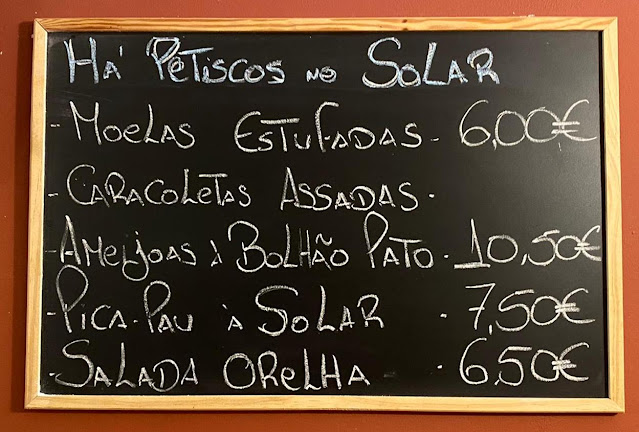 HÁ PETISCOS NO SOLAR
- MOELAS ESTUFADAS - 6,00€
- CARACOLETAS ASSADAS -
- AMEIJOAS À BOLHÃO PATO - 10,50€
- PICA-PAU À SOLAR - 7,50€
- SALADA ORELHA - 6,50€